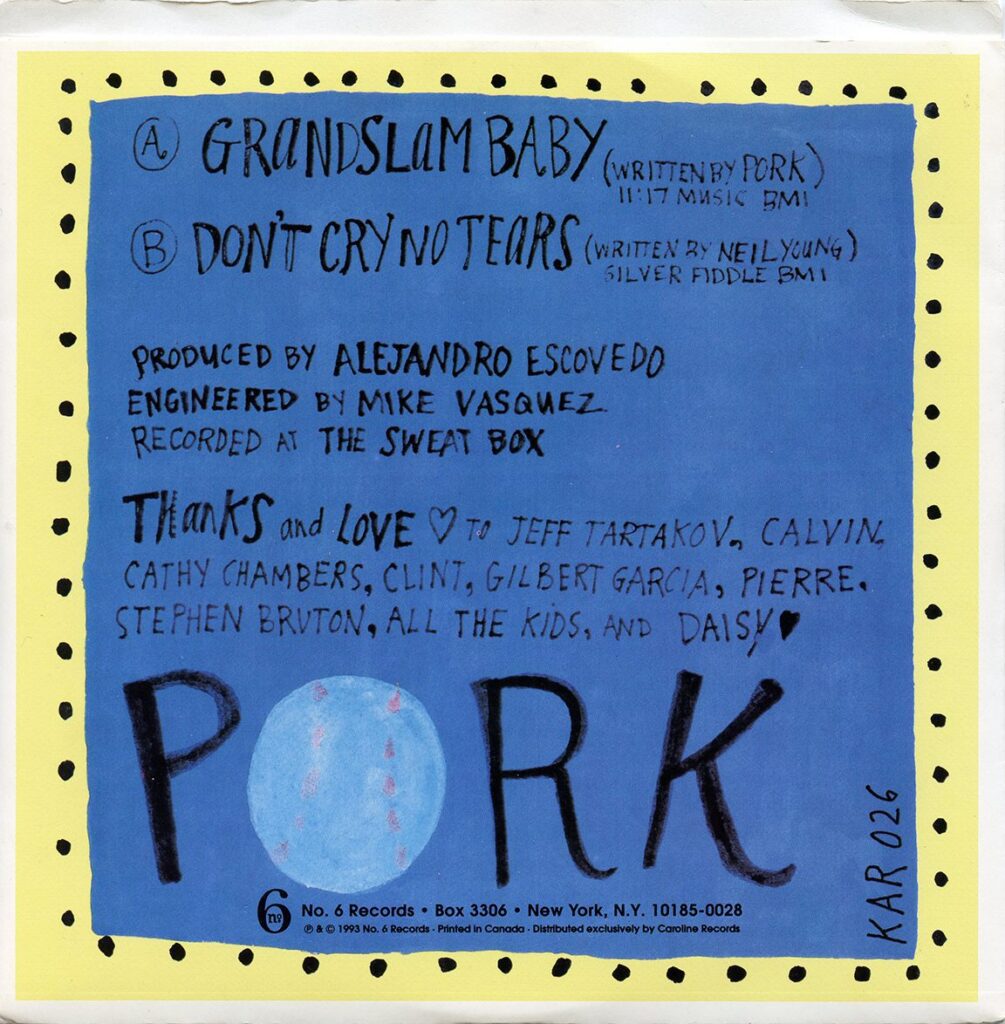 A GRANDSLAM BABY (WRITTEN BY PORK)
11:17 MUSIC BMI
B DON'T CRY NO TEARS (WRITTEN BY NEIL YOUNG)
SILVER FIDDLE BMI
PRODUCED BY ALEJANDRO ESCOVEDO
ENGINEERED BY MIKE VASQUEZ
RECORDED AT THE SWEAT BOX
THANKS and LOVE ♡ TO JEFF TARTAKOV, CALVIN,
CATHY CHAMBERS, CLINT, GILBERT GARCIA, PIERRE,
STEPHEN BRUTON, ALL THE KIDS, AND DAISY ♥
PORK
KAR 026
6 no No. 6 Records • Box 3306 • New York, N.Y. 10185-0028
℗ & © 1993 No. 6 Records · Printed in Canada · Distributed exclusively by Caroline Records